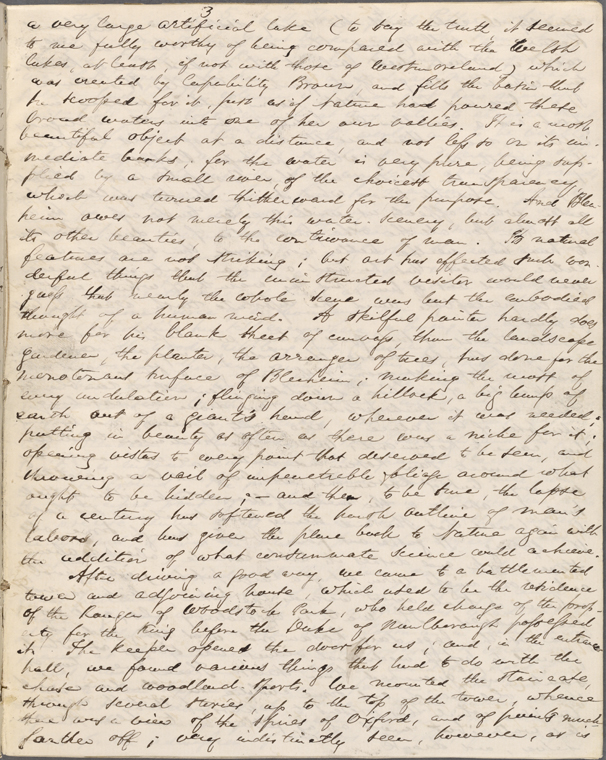 3
a very large artificial lake (to say the truth, it seemed
to me fully worthy of being compared with the Welsh
lakes, at least, if not with those of Westmoreland) which
was created by Capability Brown, and fills the basin that
he scooped for it, just as if Nature had poured these
broad waters into one of her own vallies. It is a most
beautiful object at a distance, and not less so on its im-
mediate banks; for the water is very pure, being sup-
plied by a small river, of the choicest transparency,
which was turned thitherward for the purpose. And Blen-
heim owes not merely this water-scenery, but almost all
its other beauties, to the contrivance of man. Its natural
features are not striking; but art has effected such won-
derful things that the uninstructed visitor would never
guess that nearly the whole scene was but the embodied
thought of a human mind. A skilful painter hardly does
more for his blank sheet of canvas, than the landscape
gardener, the planter, the arranger of trees, has done for the
monotonous surface of Blenheim; making the most of
every undulation; flinging down a hillock, a big lump of
earth out of a giant's hand, wherever it was needed;
putting in beauty as often as there was a niche for it;
opening vistas to every point that deserved to be seen, and
throwing a veil of impenetrable foliage around what
ought to be hidden;—and then, to be sure, the lapse
of a century has softened the harsh outline of man's
labors, and has given the place back to Nature again with
the addition of what consummate science could achieve.
After driving a good way, we came to a battlemented
tower and adjoining house, which used to be the residence
of the Ranger of Woodstock Park, who held charge of the prop-
erty for the King before the Duke of Marlborough possessed
it. The keeper opened the door for us; and, in the entrance
hall, we found various things that had to do with the
chase and woodland sports. We mounted the staircase,
through several stories, up to the top of the tower, whence
there was a view of the spires of Oxford, and of points much
farther off; very indistinctly seen, however, as is